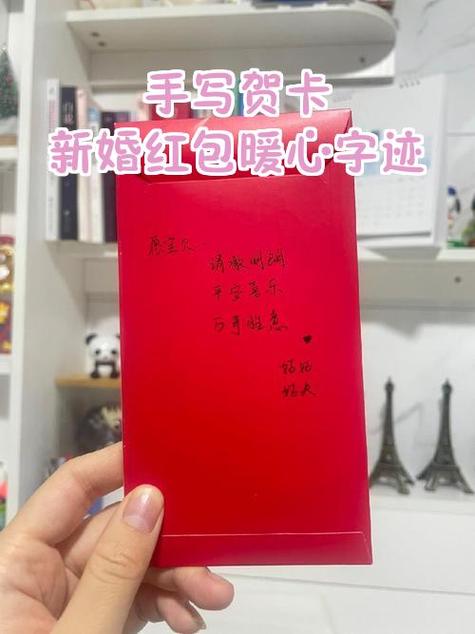 手写贺卡
新婚红包暖心字迹
愿宝贝
清澈明朗
平安喜乐
万事胜意
♥
姑姑